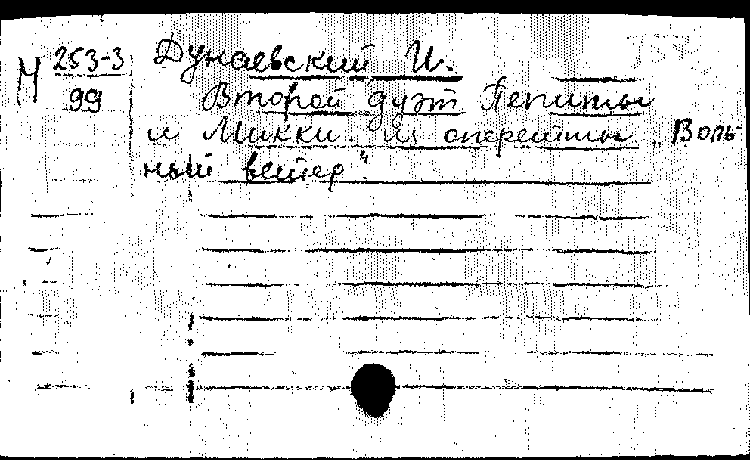 М 253-3
99
Дунаевский И.
Второй дуэт Пепиты
и Микки из оперетты „Воль-
ный ветер"